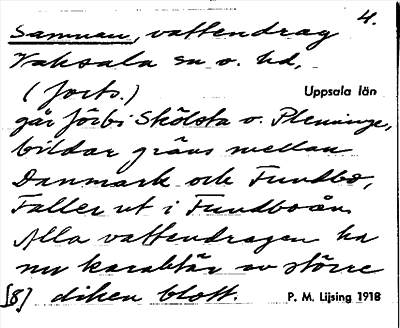 4.
Samnan, vattendrag
Vaksala sn o. hd,
(forts.) Uppsala län
går förbi Skölsta o. Pleninge,
bildar gräns mellan
Danmark och Fundbo,
Faller ut i Fundboån.
Alla vattendragen ha
nu karaktär av större
[8] diken blott. P. M. Lijsing 1918